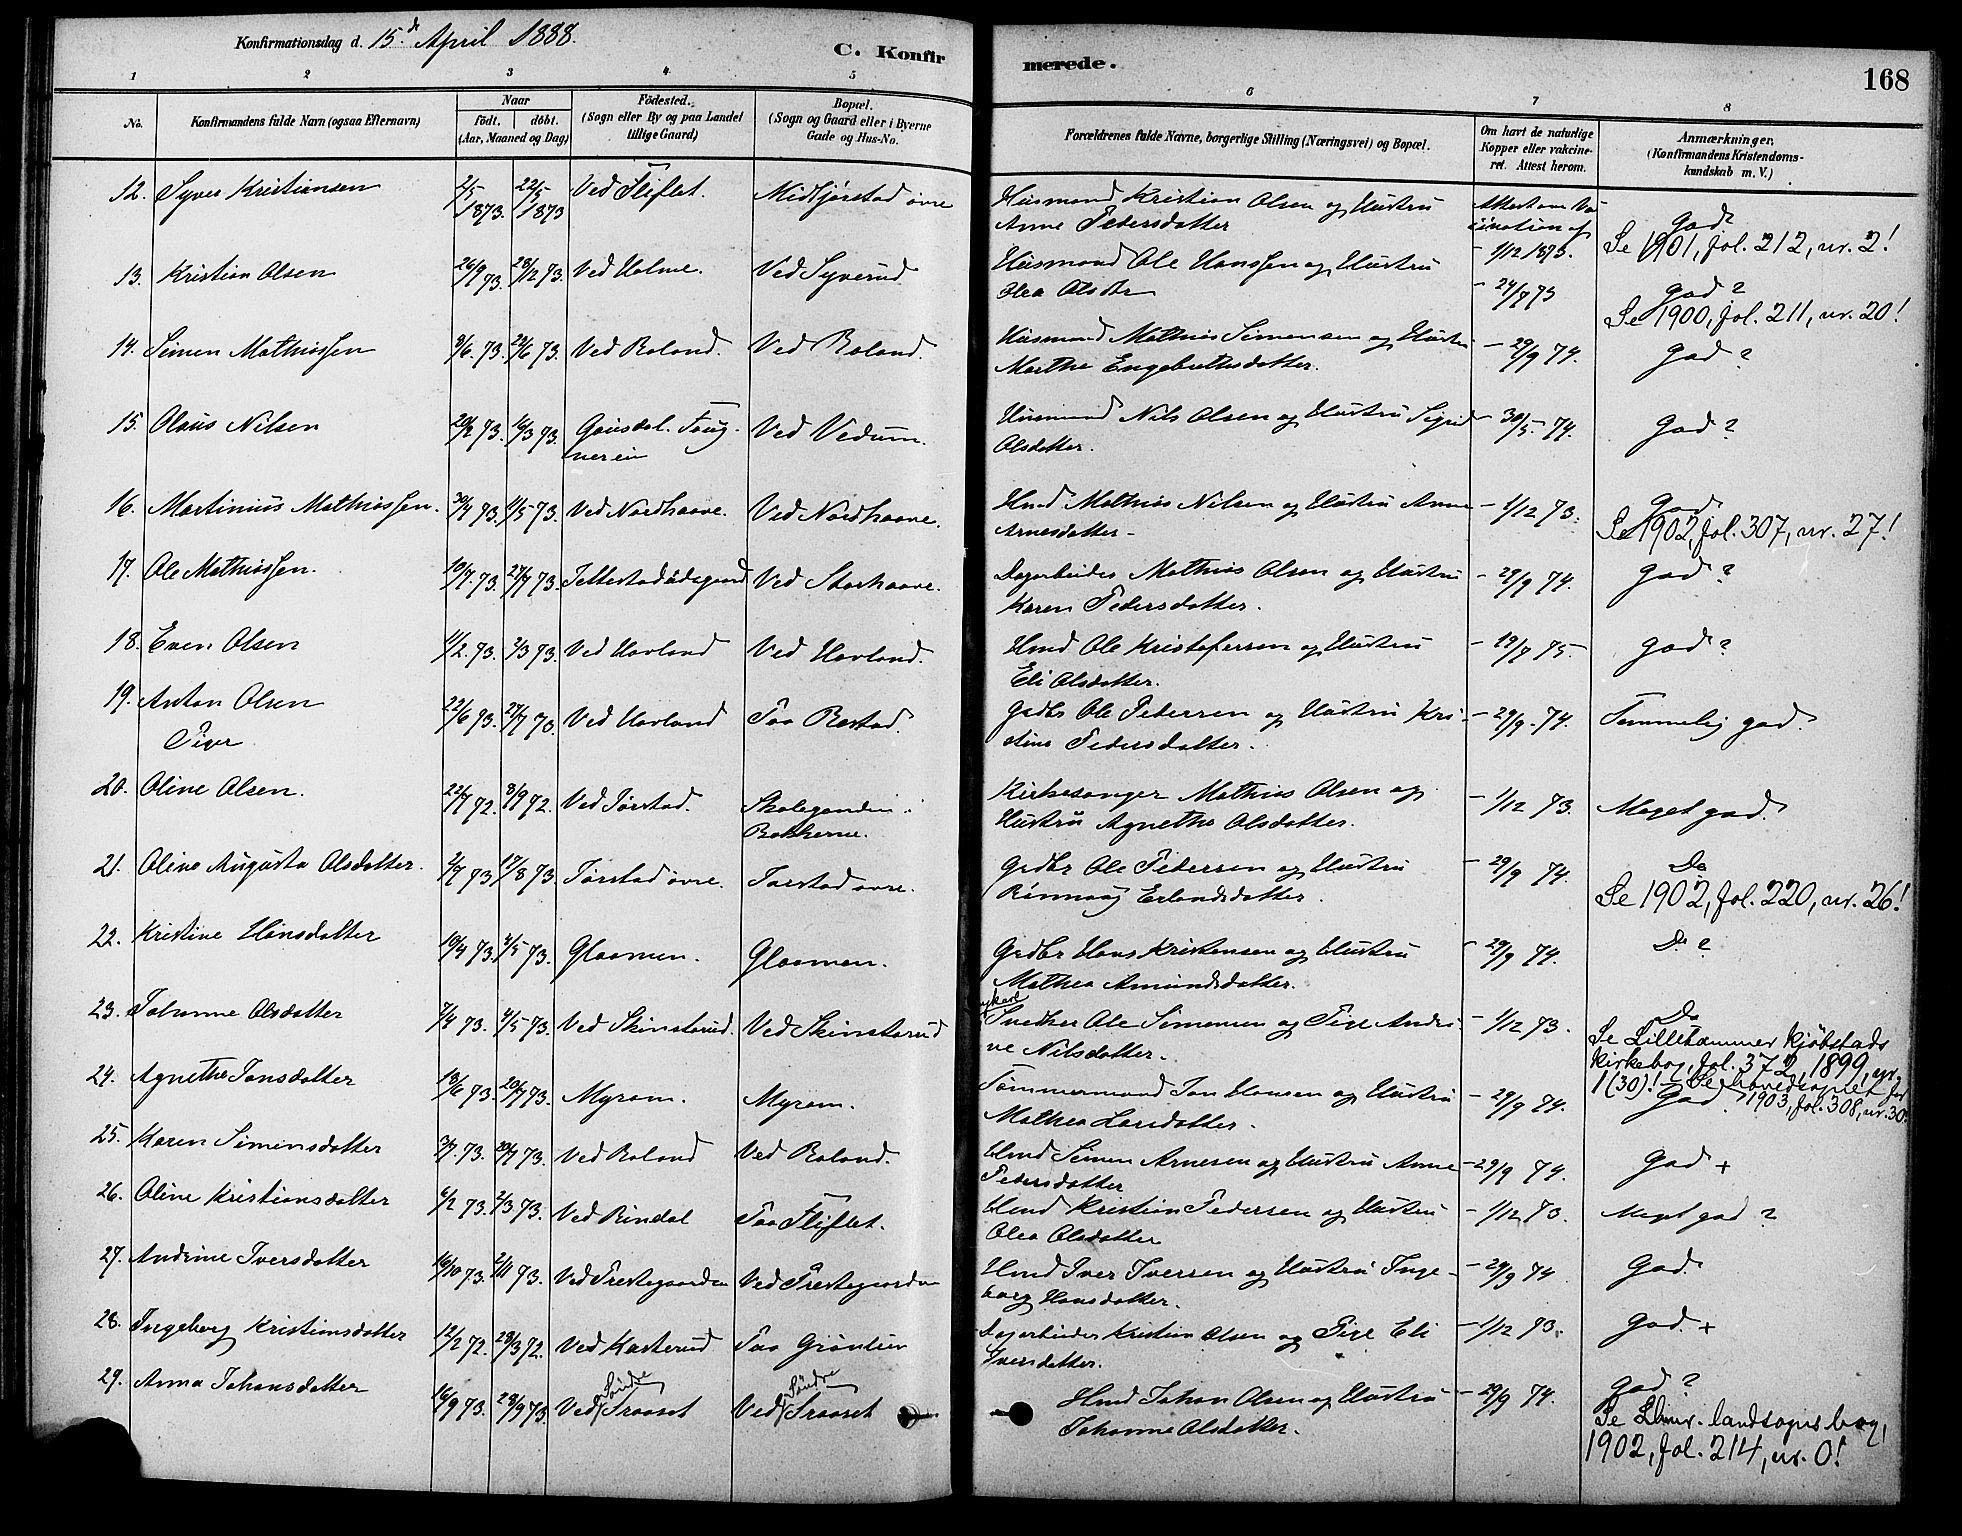 Konfirmationsdag d. 15de April 1888.
C. Konfirmerede.
168
1 2 3 4 5 6 7 8
No.
Konfirmandens fulde Navn (ogsaa Efternavn)
Naar
födt. döbt.
(Aar, Maaned og Dag)
Födested.
(Sogn eller By og paa Landet
tillige Gaard)
Bopæl.
(Sogn og Gaard eller i Byerne
Gade og Hus-No.
Forældrenes fulde Navne, borgerlige Stilling (Næringsvei) og Bopæl.
Om havt de naturlige
Kopper eller vakcine-
ret. Attest herom.
Anmærkninger.
(Konfirmandens Kristendoms-
kundskab m. V.)
12. Syver Kristiansen 2/5 1873 22/5 1873 Ved Fliflet. Midtjørstad øvre Husmand Kristian Olsen og Hustru
Anne Pedersdatter Attest om Vaccination af - 1/12 1873. god
Se 1901, fol. 212, nr. 2!
13. Kristian Olsen 26/9 73. 28/12 73. Ved Holme. Ved Syverud Husmand Ole Hanssen og Hustru
Olea Olsdtr - 24/7 75 god?
Se 1900, fol. 211, nr. 20!
14. Simen Mathiassen 9/6. 73. 29/6 73. Ved Roland. Ved Roland. Husmand Mathias Simensen og Hustru
Marthe Engebretsdatter. - 29/9 74. God?
15. Olaus Nilsen 20/2 73. 16/3 73. Gausdal. Ved Vedum. Husmand Nils Olsen og Hustru Sigrid
Olsdatter. - 30/5 74. God?
16. Martinius Mathiassen. 30/4 73. 11/5 73. Ved Nordhaave. Ved Nordhaave. Hmd Mathias Nilsen og Hustru Anne
Arnesdatter - - 1/12 73. God
Se 1902, fol. 307, nr. 27!
17. Ole Mathiassen. 10/7. 73. 27/7 73. Jettestadødegaard Ved Storhaave. Dagarbeider Mathias Olsen og Hustru
Karen Pedersdatter. - 29/9 74. God?
18. Even Olsen 11/2. 73. 2/3 73. Ved Hovland Ved Hovland. Hmd Ole Kristofersen og Hustru
Eli Olsdatter. - 19/7 75. god?
19. Anton Olsen 22/6 73. 27/7 73. Ved Hovland Paa Rostad. Grdbr Ole Pedersen og Hustru Kri-
stine Pedersdatter. - 29/9. 74. Temmelig god.
Piger
20. Oline Olsen. 22/7 72. 8/9 72. Ved Jørstad. Skolegaarden i
Bakkerne. Kirkesanger Mathias Olsen og
Hustru Agnethe Olsdatter. - 1/12 73. Meget god.
21. Oline Augusta Olsdatter. 2/7 73 17/8 73. Jørstad øvre. Jørstad øvre. Grdbr Ole Pedersen og Hustru
Rønnaug Erlandsdatter. - 29/9 74. Do
Se 1902, fol. 220, nr. 26!
22. Kristine Hansdatter 19/4 73. 4/5 73. Glaamen. Glaamen. Grdbr Hans Kristensen og Hustru
Mathea Amundsdatter. - 29/9 74. Do?
23. Johanne Olsdatter 7/4 73. 4/5 73. Ved Skinstarud. Ved Skinstarud Snedker Ole Simensen og Pige Andri-
ne Nilsdatter. - 1/12 73. Do
Se Lillehammer kjöbstads
kirkebog, fol. 372, 1899, nr.
1 (30)! - Se hovedsognet for
1903, fol. 308, nr. 30.
24. Agnethe Jonsdatter 13/6 73. 20/7 73. Myrom. Myrom. Tømmermand Jon Hansen og Hustru
Mathea Larsdatter. - 29/9 74. God.
25. Karen Simensdatter 3/7. 73. 20/7 73. Ved Roland Ved Roland. Hmd Simen Arnesen og Hustru Anne
Pedersdatter - 29/9 74. God +
26. Oline Kristiansdatter 6/2 73. 2/3 73. Ved Rindal Paa Fliflet. Hmd Kristian Pedersen og Hustru
Olea Olsdatter - 1/12 73. Meget god?
27. Andrine Iversdatter 16/10 73. 2/11 73. Ved Prestegaarden Ved Prestegaarden Hmd Iver Iversen og Hustru Inge-
borg Hansdatter. - 29/9 74 God.
28. Ingeborg Kristiansdatter 12/2 72. 29/3 72. Ved Kasterud Paa Grønlien Dagarbeider Kristian Olsen og Pige Eli
Iversdatter. - 1/12 73. God. +
29. Anna Johansdatter 16/9 73. 28/9 73 Ved Søndre Traaset Ved Søndre Traaset Hmd Johan Olsen og Hustru
Johanne Olsdatter. - 29/9 74. god?
Se Lhmr. landsogns bog,
1902, fol. 214, nr. 0!